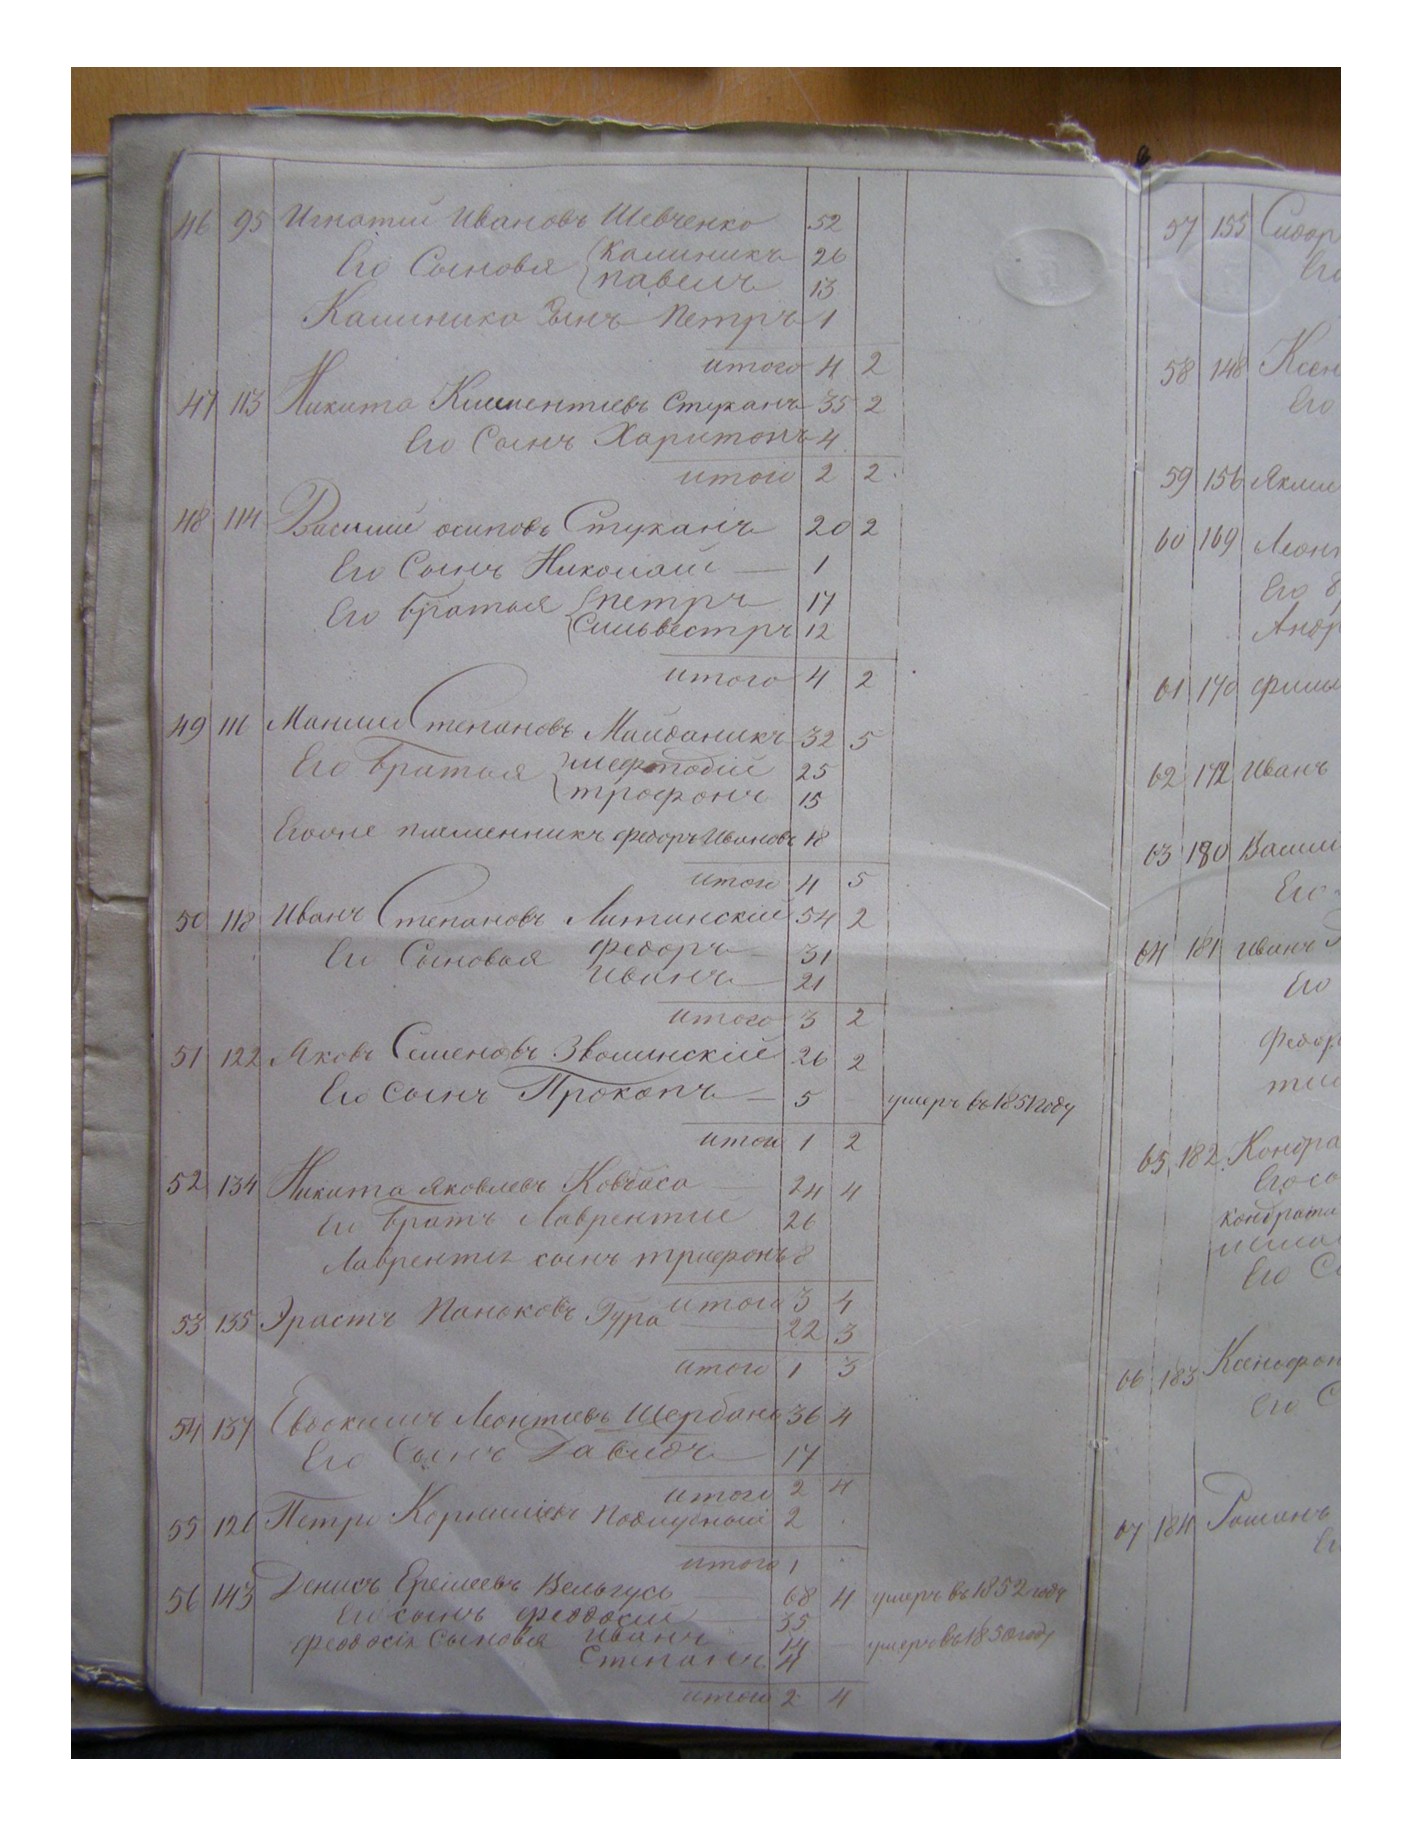 46 95 Игнатий Ивановъ Шевченко 52
Его Сыновья Калиникъ 26
павелъ 13
Калиника Сынъ Петръ 1
итого 4 2
47 113 Никита Климентиевъ Стуканъ 35 2
Его Сынъ Харитонъ 4
итого 2 2
48 114 Василий осиповъ Стуканъ 20 2
Его Сынъ Николай 1
Его братья петръ 17
Сильвестръ 12
итого 4 2
49 116 Степановъ Майданикъ 32 5
Его братья мефтодій 25
трофонъ 15
племенникъ федоръ Ивановъ 18
итого 4 5
50 118 Иванъ Степановъ Литинскій 54 2
Его Сыновья федоръ 31
иванъ 21
итого 3 2
51 122 Яковъ Семеновъ Зволинскій 26 2
Его сынъ Прокопъ 5 умеръ въ 1851 году
итого 1 2
52 134 Никита яковлевъ Ковчаса 24 4
Его братъ Лаврентие 26
Лаврентия сынъ трифонъ 8
итого 3 4
53 135 Эрастъ Гура 22 3
итого 1 3
54 137 Евдокимъ Леонтиевъ Щербань 36 4
Его Сынъ Давидъ 17
итого 2 4
55 126 Петро Корнилиевъ 2
итого 1
56 143 Денисъ Еремеевъ Вельгусь 68 4 умеръ въ 1852 годе
Его сынъ феодосий 35
феодосія Сыновья иванъ 14 умеръ въ 1850 году
Степанъ 4
итого 2 4
57 155 Сидор
Его
58 148 Ксен
Его
59 156 Яким
60 169 Леон
Его б
Андр
61 170 фили
62 172 Иванъ
63 180 Васили
Его
64 181 иванъ
Его
Федор
65 182 Кондра
Его со
кондрата
Его С
66 183 Ксенофон
Его С
67 184 Романъ
Ег